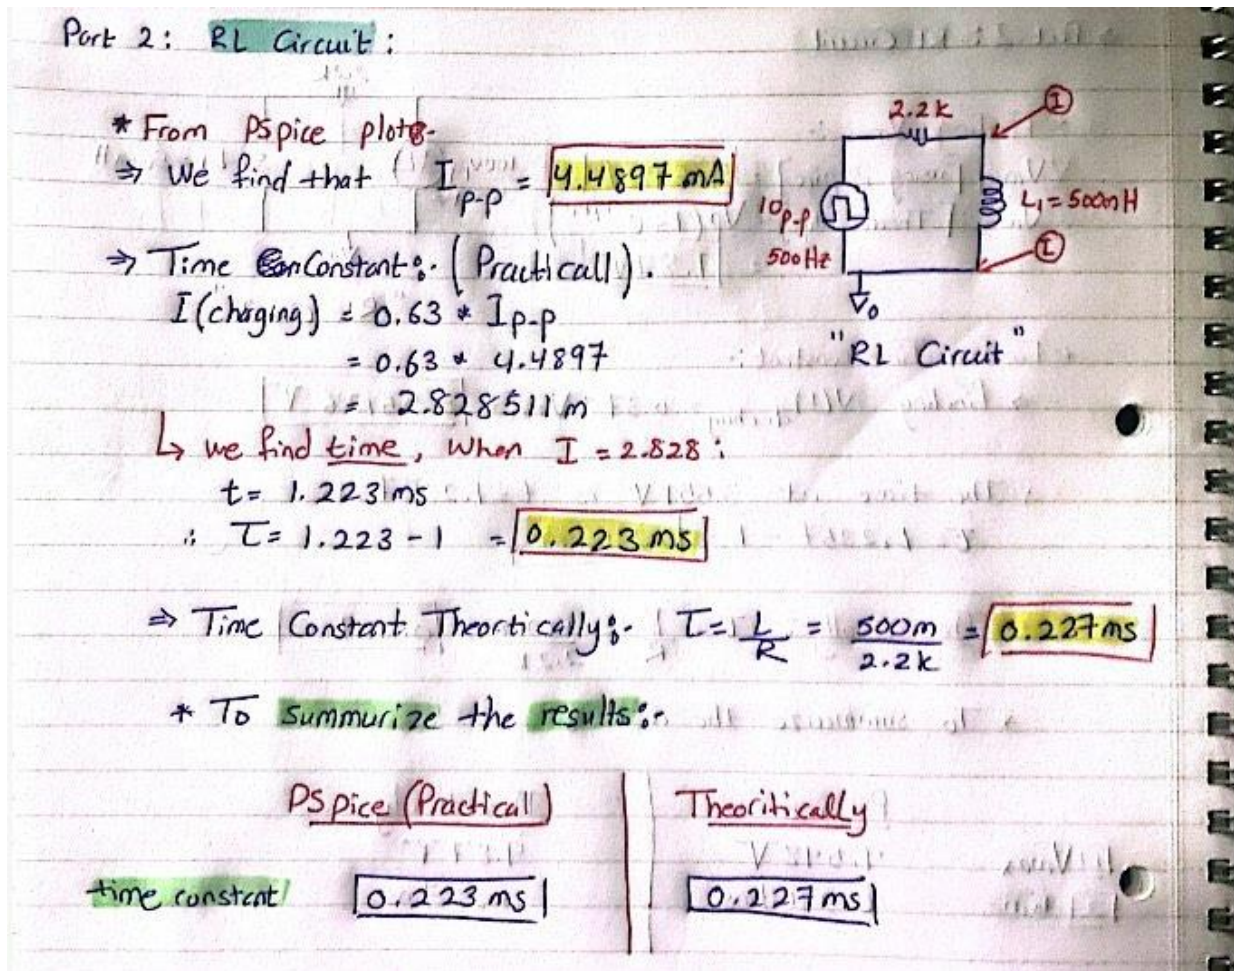 Part 2: RL Circuit:
* From PSpice plots-
⇒ We find that I p-p = 4.4897 mA
2.2k
I
10 p-p
500Hz
L₁ = 500mH
I
0
"RL Circuit"
⇒ Time Constant:- (Practicall).
I(charging) = 0.63 * Ip-p
= 0.63 * 4.4897
= 2.828511 m
↳ we find time, when I = 2.828:
t = 1.223 ms
∴ τ = 1.223 - 1 = 0.223 ms
⇒ Time Constant Theortically:- τ = L/R = 500m/2.2k = 0.227ms
* To summurize the results:-
PSpice (Practical) Theoritically
time constant 0.223 ms 0.227 ms